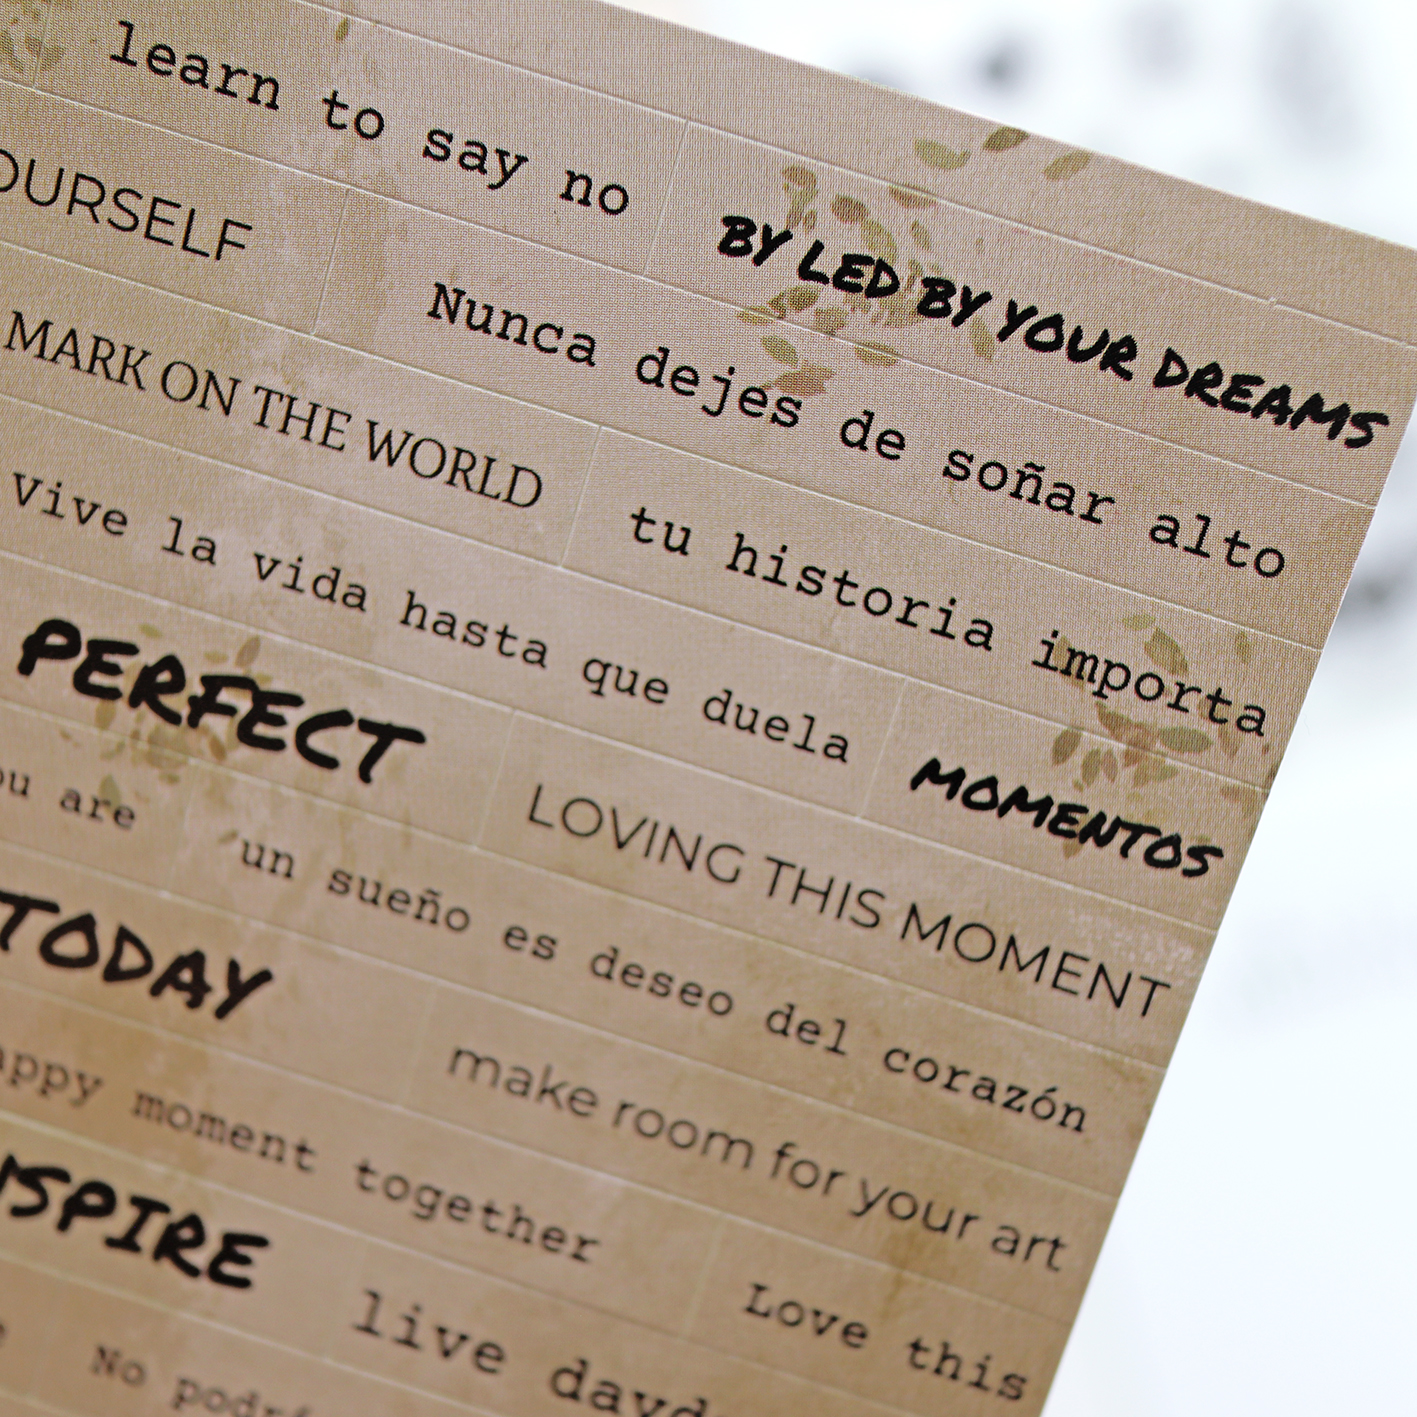 learn to say no BY LED BY YOUR DREAMS
OURSELF Nunca dejes de soñar alto
MARK ON THE WORLD tu historia importa
Vive la vida hasta que duela MOMENTOS
PERFECT LOVING THIS MOMENT
ou are un sueño es deseo del corazón
TODAY make room for your art
appy moment together Love this
NSPIRE live dayd
No podrí